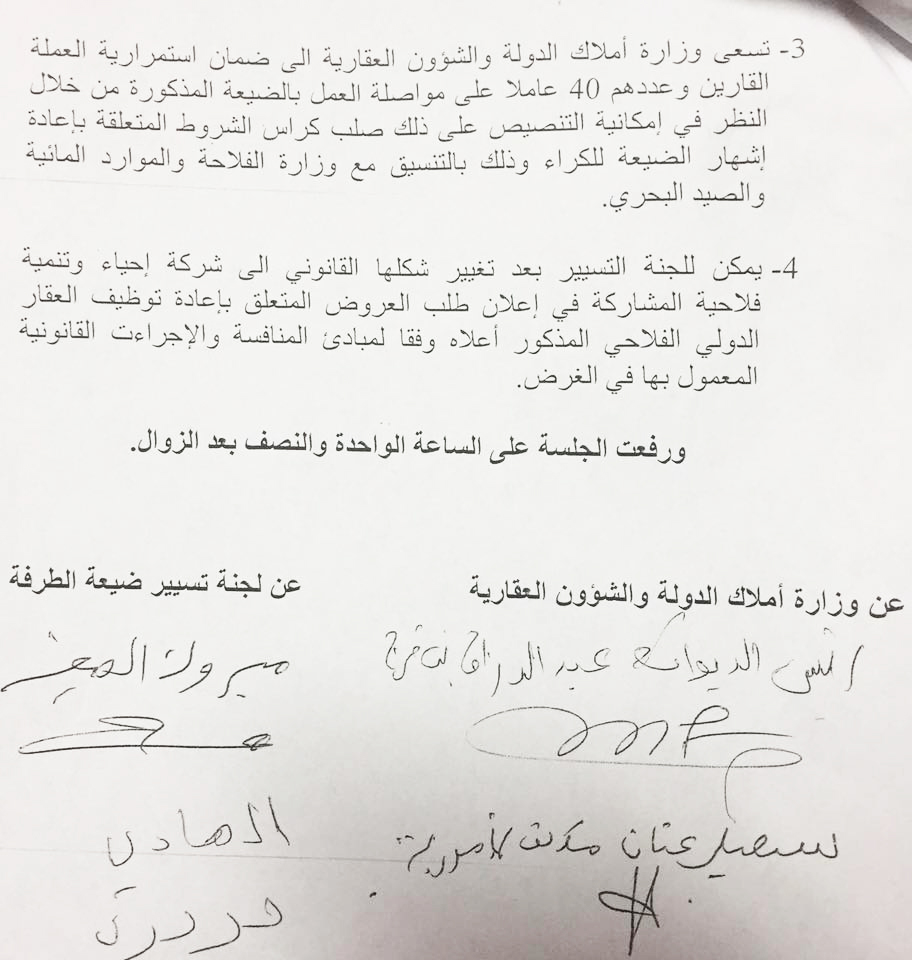 3- تسعى وزارة أملاك الدولة والشؤون العقارية الى ضمان استمرارية العملة
القارين وعددهم 40 عاملا على مواصلة العمل بالضيعة المذكورة من خلال
النظر في إمكانية التنصيص على ذلك صلب كراس الشروط المتعلقة بإعادة
إشهار الضيعة للكراء وذلك بالتنسيق مع وزارة الفلاحة والموارد المائية
والصيد البحري.
4- يمكن للجنة التسيير بعد تغيير شكلها القانوني الى شركة إحياء وتنمية
فلاحية المشاركة في إعلان طلب العروض المتعلق بإعادة توظيف العقار
الدولي الفلاحي المذكور أعلاه وفقا لمبادئ المنافسة والإجراءت القانونية
المعمول بها في الغرض.
ورفعت الجلسة على الساعة الواحدة والنصف بعد الزوال.
عن وزارة أملاك الدولة والشؤون العقارية
عن لجنة تسيير ضيعة الطرفة
رئيس الديوان عبد الرزاق بن فرج
مبروك الصغير
سهيل عثمان مكلف بمأمورية
الهادي